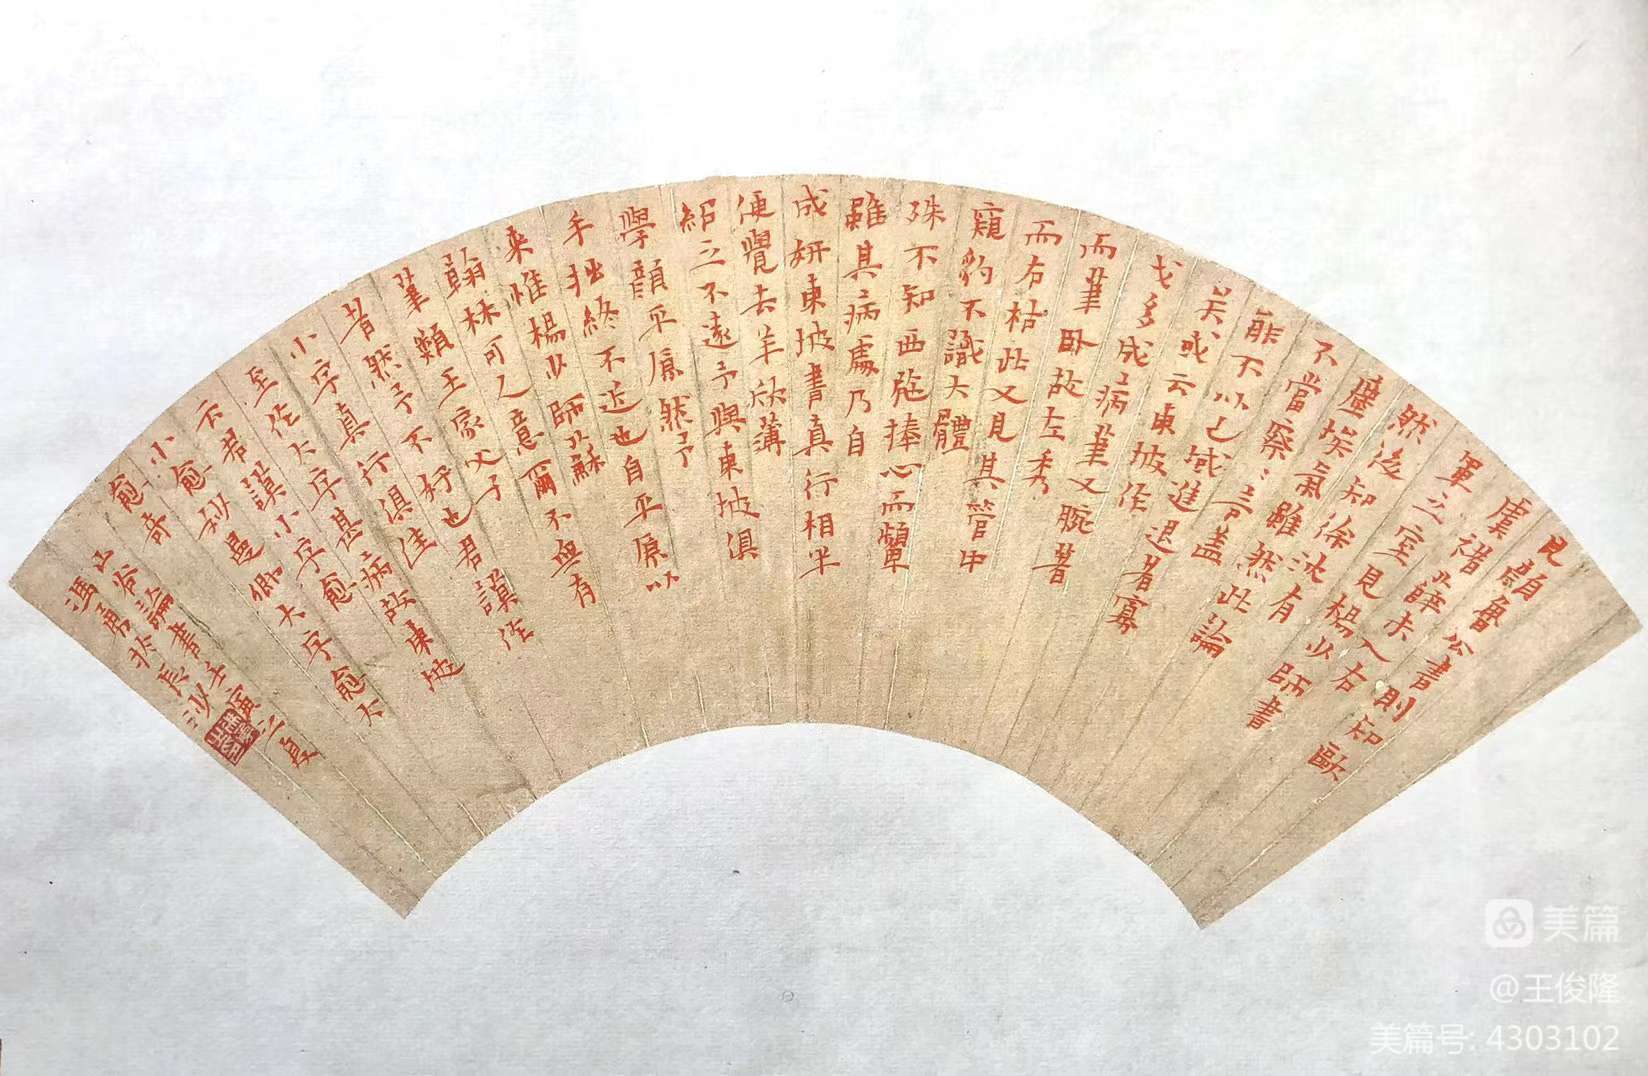 見顏魯公書則知歐
虞褚薛未入右
軍之室見楊少師書
然後知徐沈有
塵埃氣雖然此論
不當察〻言盖
能不以己域進退者寡
矣或云東坡作
戈多成病筆又腕著
而筆臥故左秀
而右枯此又見其管中
窺豹不識大體
殊不知西施捧心而顰
雖其病處乃自
成妍東坡書真行相半
便覺去羊欣薄
紹之不遠予與東坡俱
學顏平原然予
手拙終不近也自平原以
來惟楊少師蘇
翰林可人意爾不無有
筆類王家父子
者然予不好也君謨作
小字真行俱佳
至作大字甚病故東坡
云君謨小字愈
小愈妙曼卿大字愈大
愈奇
山谷論書壬寅之夏
馮勇於長沙
美篇
@王俊隆
美篇号: 4303102